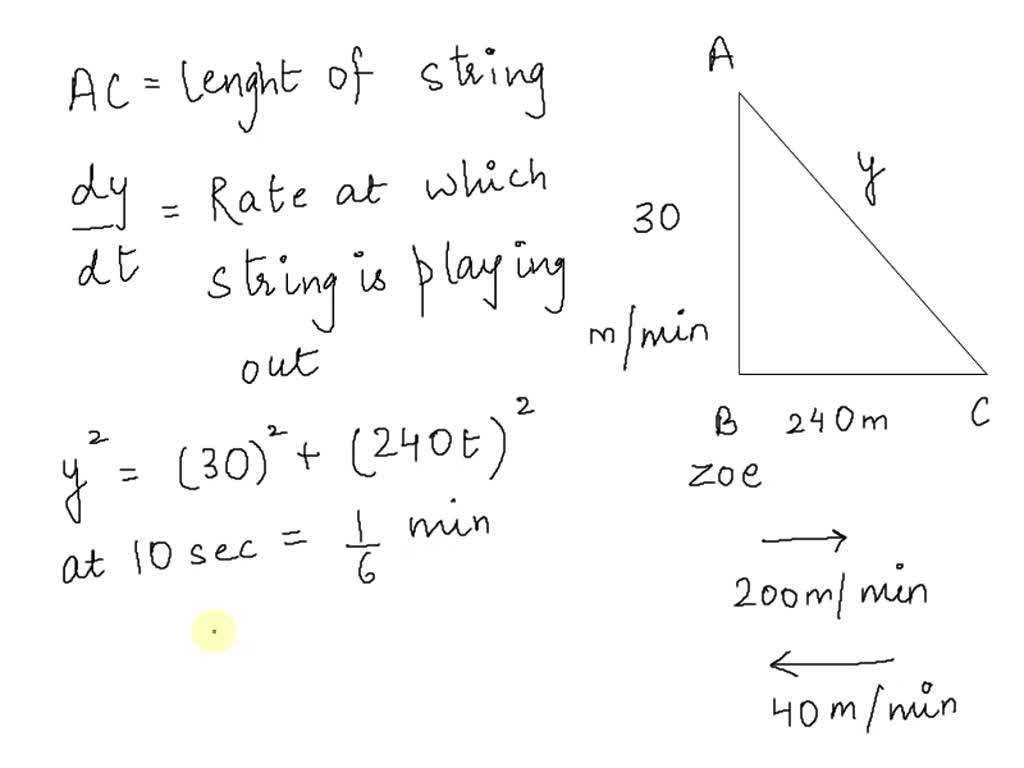 AC = lenght of string
dy/dt = Rate at which
string is playing
out
y² = (30)² + (240t)²
at 10 sec = 1/6 min
A
y
30
m/min
B 240m C
zoe
→
200m/min
←
40m/min